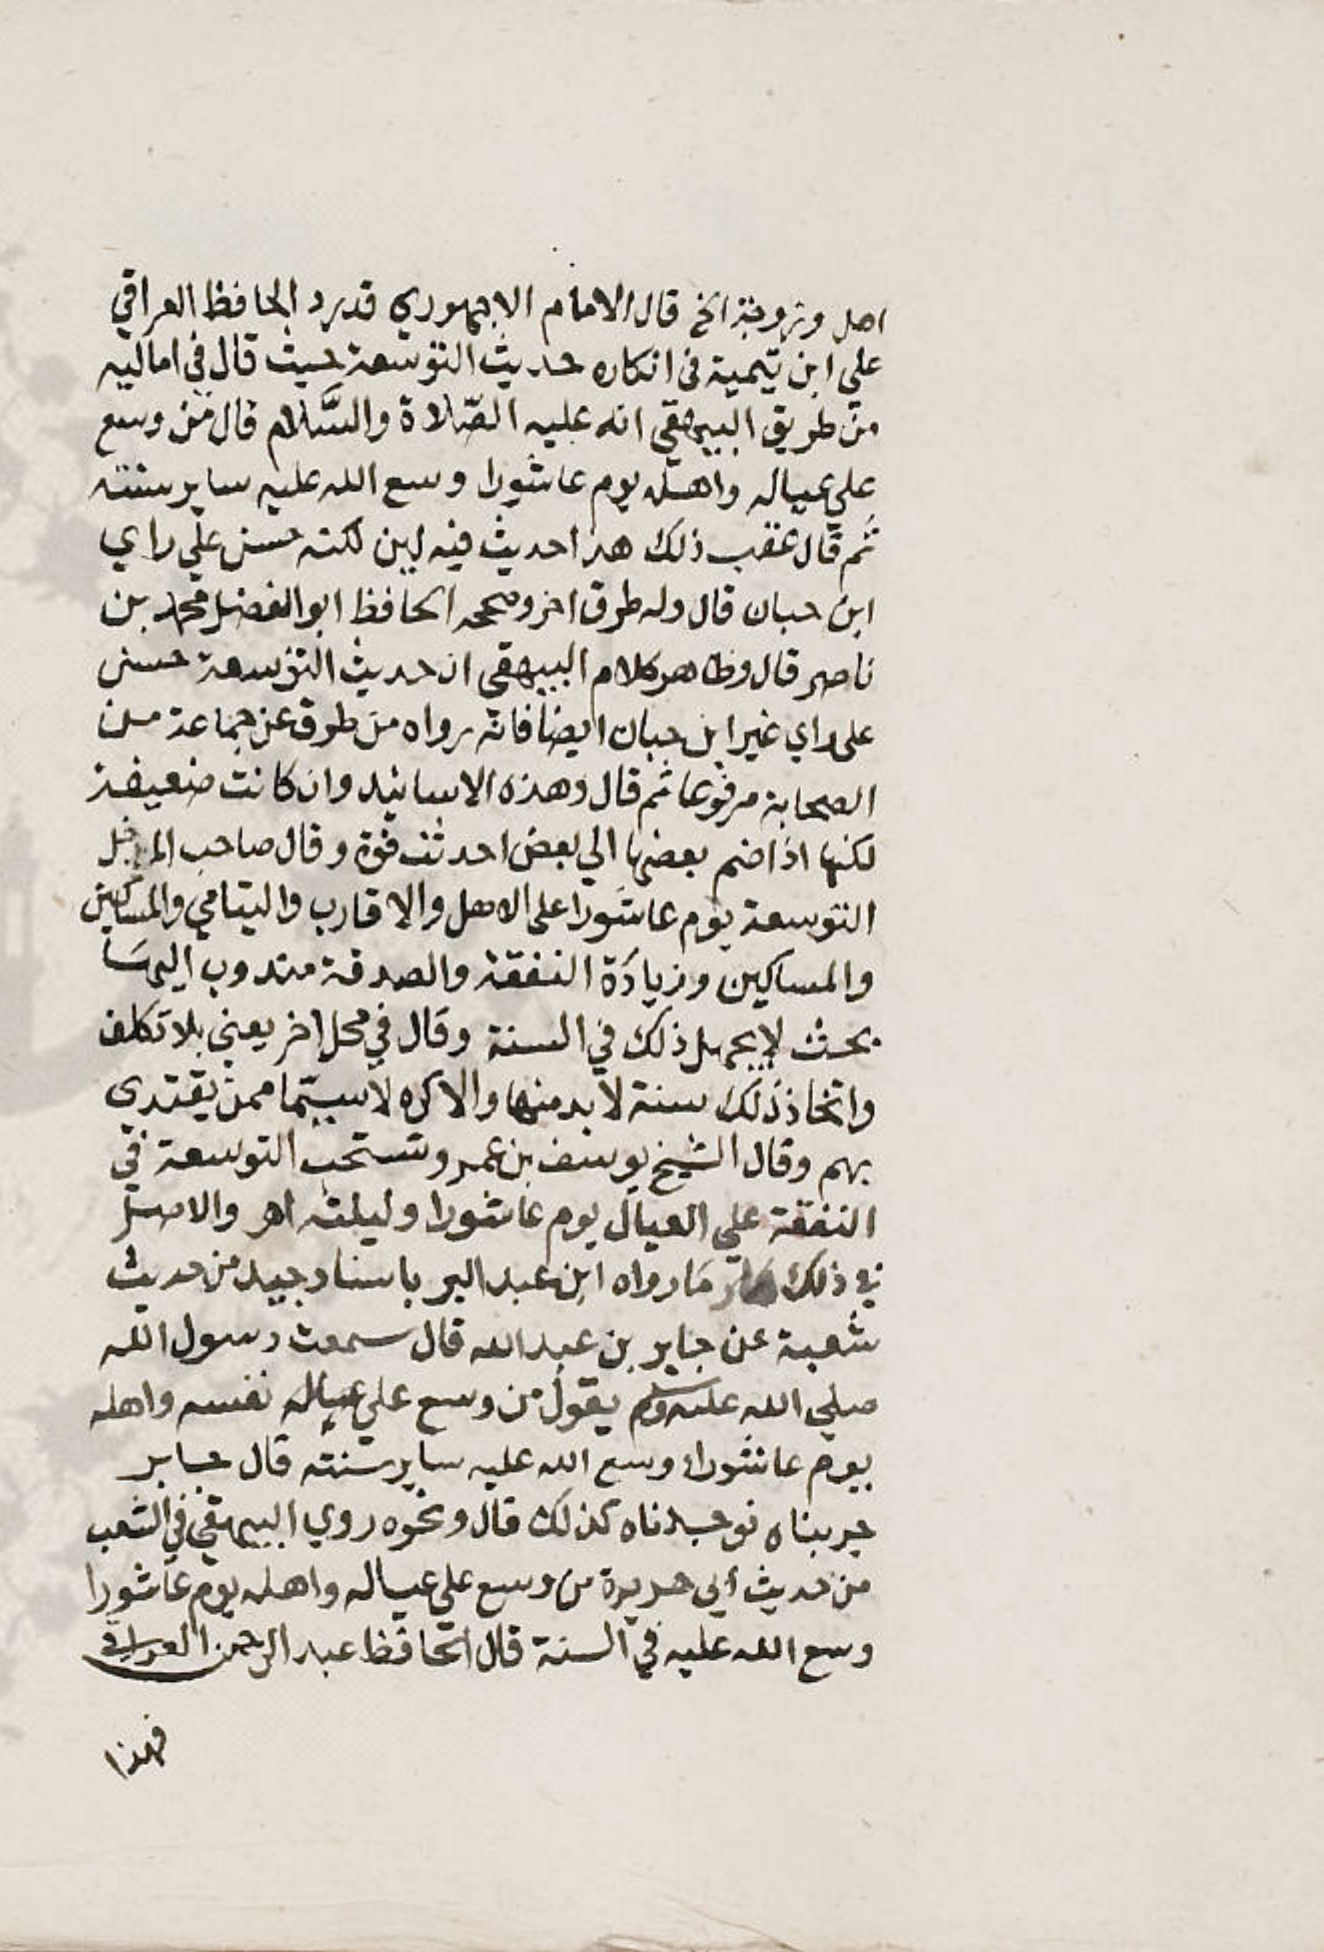 اصل وزوجة الخ قال الامام الاجهوري قد رد الحافظ العراقي
علي ابن تيمية في انكاره حديث التوسعة حيث قال في اماليه
من طريق البيهقي انه عليه الصّلاة والسَّلام قال من وسع
علي عياله واهله يوم عاشورا وسع الله عليه ساير سنته
ثم قال عقب ذلك هذا حديث فيه لين لكنه حسن علي راي
ابن حبان قال وله طرق اخر وصححه الحافظ ابو الفضل محمد بن
ناصر قال وظاهر كلام البيهقي ان حديث التوسعة حسن
على راي غير ابن حبان ايضا فانه رواه من طرق عن جماعة من
الصحابة مرفوعا ثم قال وهذه الاسانيد وان كانت ضعيفة
لكنها اذا ضم بعضها الي بعض احدثت قوة وقال صاحب المدخل
التوسعة يوم عاشورا على الاهل والاقارب واليتامي والمساكين
والمساكين وزيادة النفقة والصدقة مندوب اليها
بحيث لا يجهل ذلك في السنة وقال في محل اخر يعني بلا تكلف
واتخاذ ذلك سنة لا بد منها والا كره لا سيّما ممن يقتدي
بهم وقال الشيخ يوسف بن عمر وتستحب التوسعة في
النفقة علي العيال يوم عاشورا وليلته اهر والاصل
في ذلك ما رواه ابن عبد البر باسناد جيد من حديث
شعبة عن جابر بن عبد الله قال سمعت رسول الله
صلي الله عليه وسلم يقول من وسع علي عياله نفسه واهله
يوم عاشوراء وسع الله عليه ساير سنته قال جابر
جربناه فوجدناه كذلك قال ونحوه روي البيهقي في الشعب
من حديث أبي هريرة من وسع على عياله واهله يوم عاشورا
وسع الله عليه في السنة قال الحافظ عبد الرحمن العراقي
فهذا